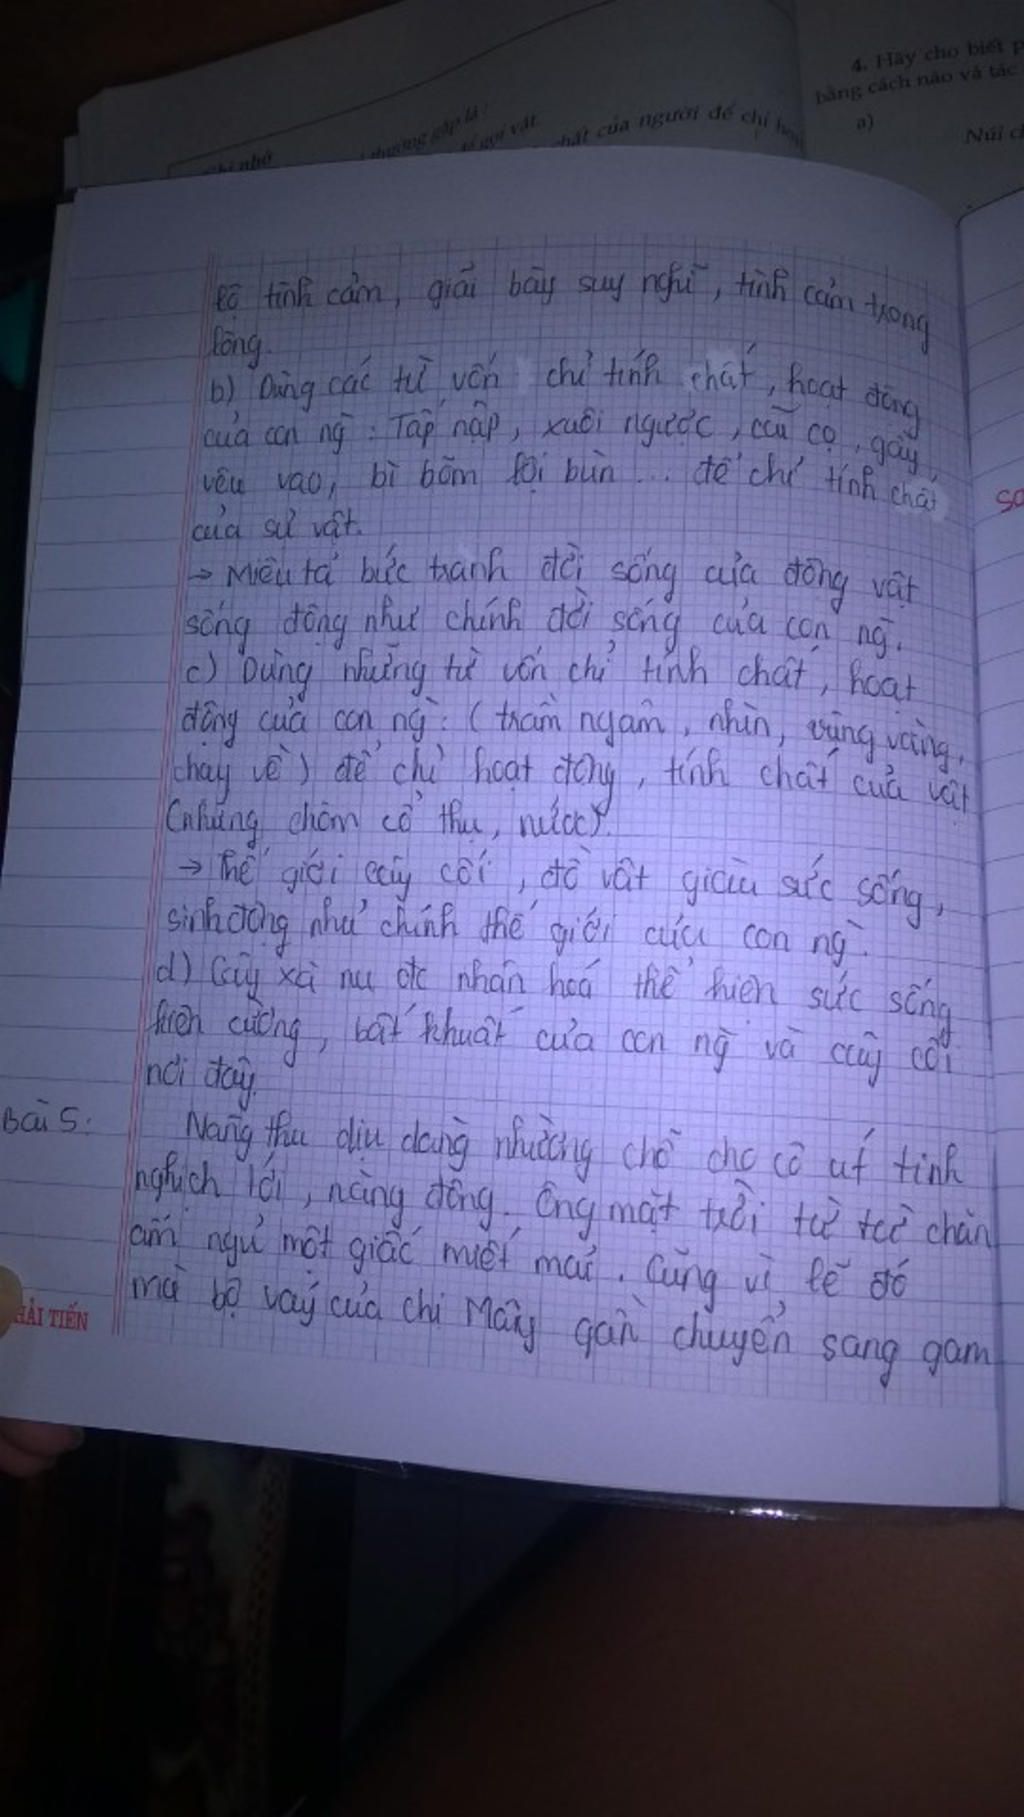 4. Hãy cho biết p
bằng cách nào và tác
a)
Núi c
Ghi nhớ
thường gặp là :
gọi vật
chất của người để chỉ hoạ
lộ tình cảm, giãi bày suy nghĩ, tình cảm trong
lòng.
b) Dùng các từ vốn chỉ tính chất, hoạt động
của con ng : Tấp nập, xuôi ngược, cãi cọ, gầy,
vêu vao, bì bõm lội bùn ... để chỉ tính chất
của sự vật.
→ Miêu tả bức tranh đời sống của động vật
sống động như chính đời sống của con ng.
c) Dùng những từ vốn chỉ tính chất, hoạt
động của con ng : (trầm ngâm, nhìn, vùng vằng,
chạy về) để chỉ hoạt động, tính chất của vật
(những chòm cổ thụ, nước).
→ Thế giới cây cối, đồ vật giàu sức sống,
sinh động như chính thế giới của con ng.
d) Cây xà nu đc nhân hoá thể hiện sức sống
kiên cường, bất khuất của con ng và cây cối
nơi đây.
Bài 5:
Nàng thu dịu dàng nhường chỗ cho cô út tinh
nghịch tới, nàng đông. Ông mặt trời từ từ chăn
ấm ngủ một giấc miết mải. Cũng vì lẽ đó
mà bộ váy của chị Mây gần chuyển sang gam
HẢI TIẾN